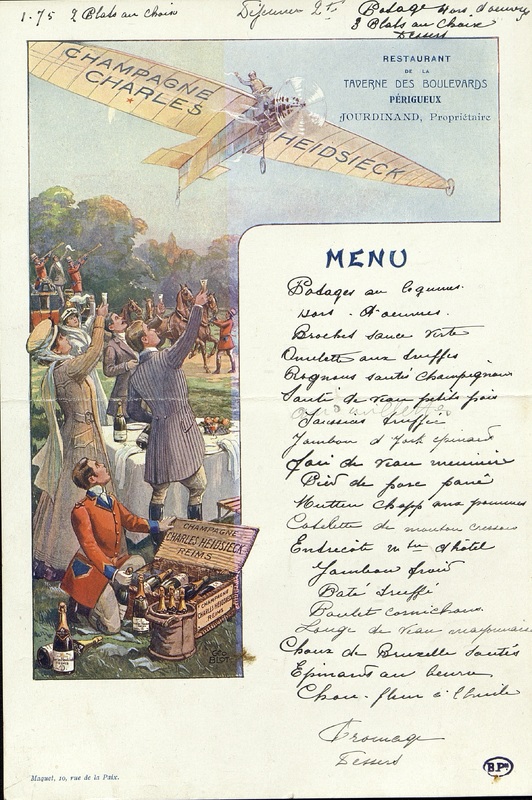 1.75 2 Plats au choix
Déjeuner 2f Potage Hors d'oeuvre
3 Plats au choix
Dessert
RESTAURANT
DE LA
TAVERNE DES BOULEVARDS
PÉRIGUEUX
JOURDINAND, Propriétaire
CHAMPAGNE
CHARLES
HEIDSIECK
MENU
Potages aux legumes
Hors - d'oeuvres
Brochet sauce verte
Omelette aux truffes
Rognons sautés champignons
Sauté de veau petits pois
truffée
Jambon d'York epinard
foie de veau meuniere
Pied de porc pané
Mutton Chopp aux pommes
Cotelette de mouton cresson
Entrecote m tre d'hôtel
Jambon froid
Paté truffé
Poulet cornichons
Longe de veau mayonnaise
Choux de Bruxelle sautés
Epinards au beurre
Chou-fleur à l'huile
Fromage
Dessert
CHAMPAGNE
CHARLES HEIDSIECK
REIMS
CHAMPAGNE
CHARLES HEIDSIECK
REIMS
Maquet, 10, rue de la Paix.
B.Px